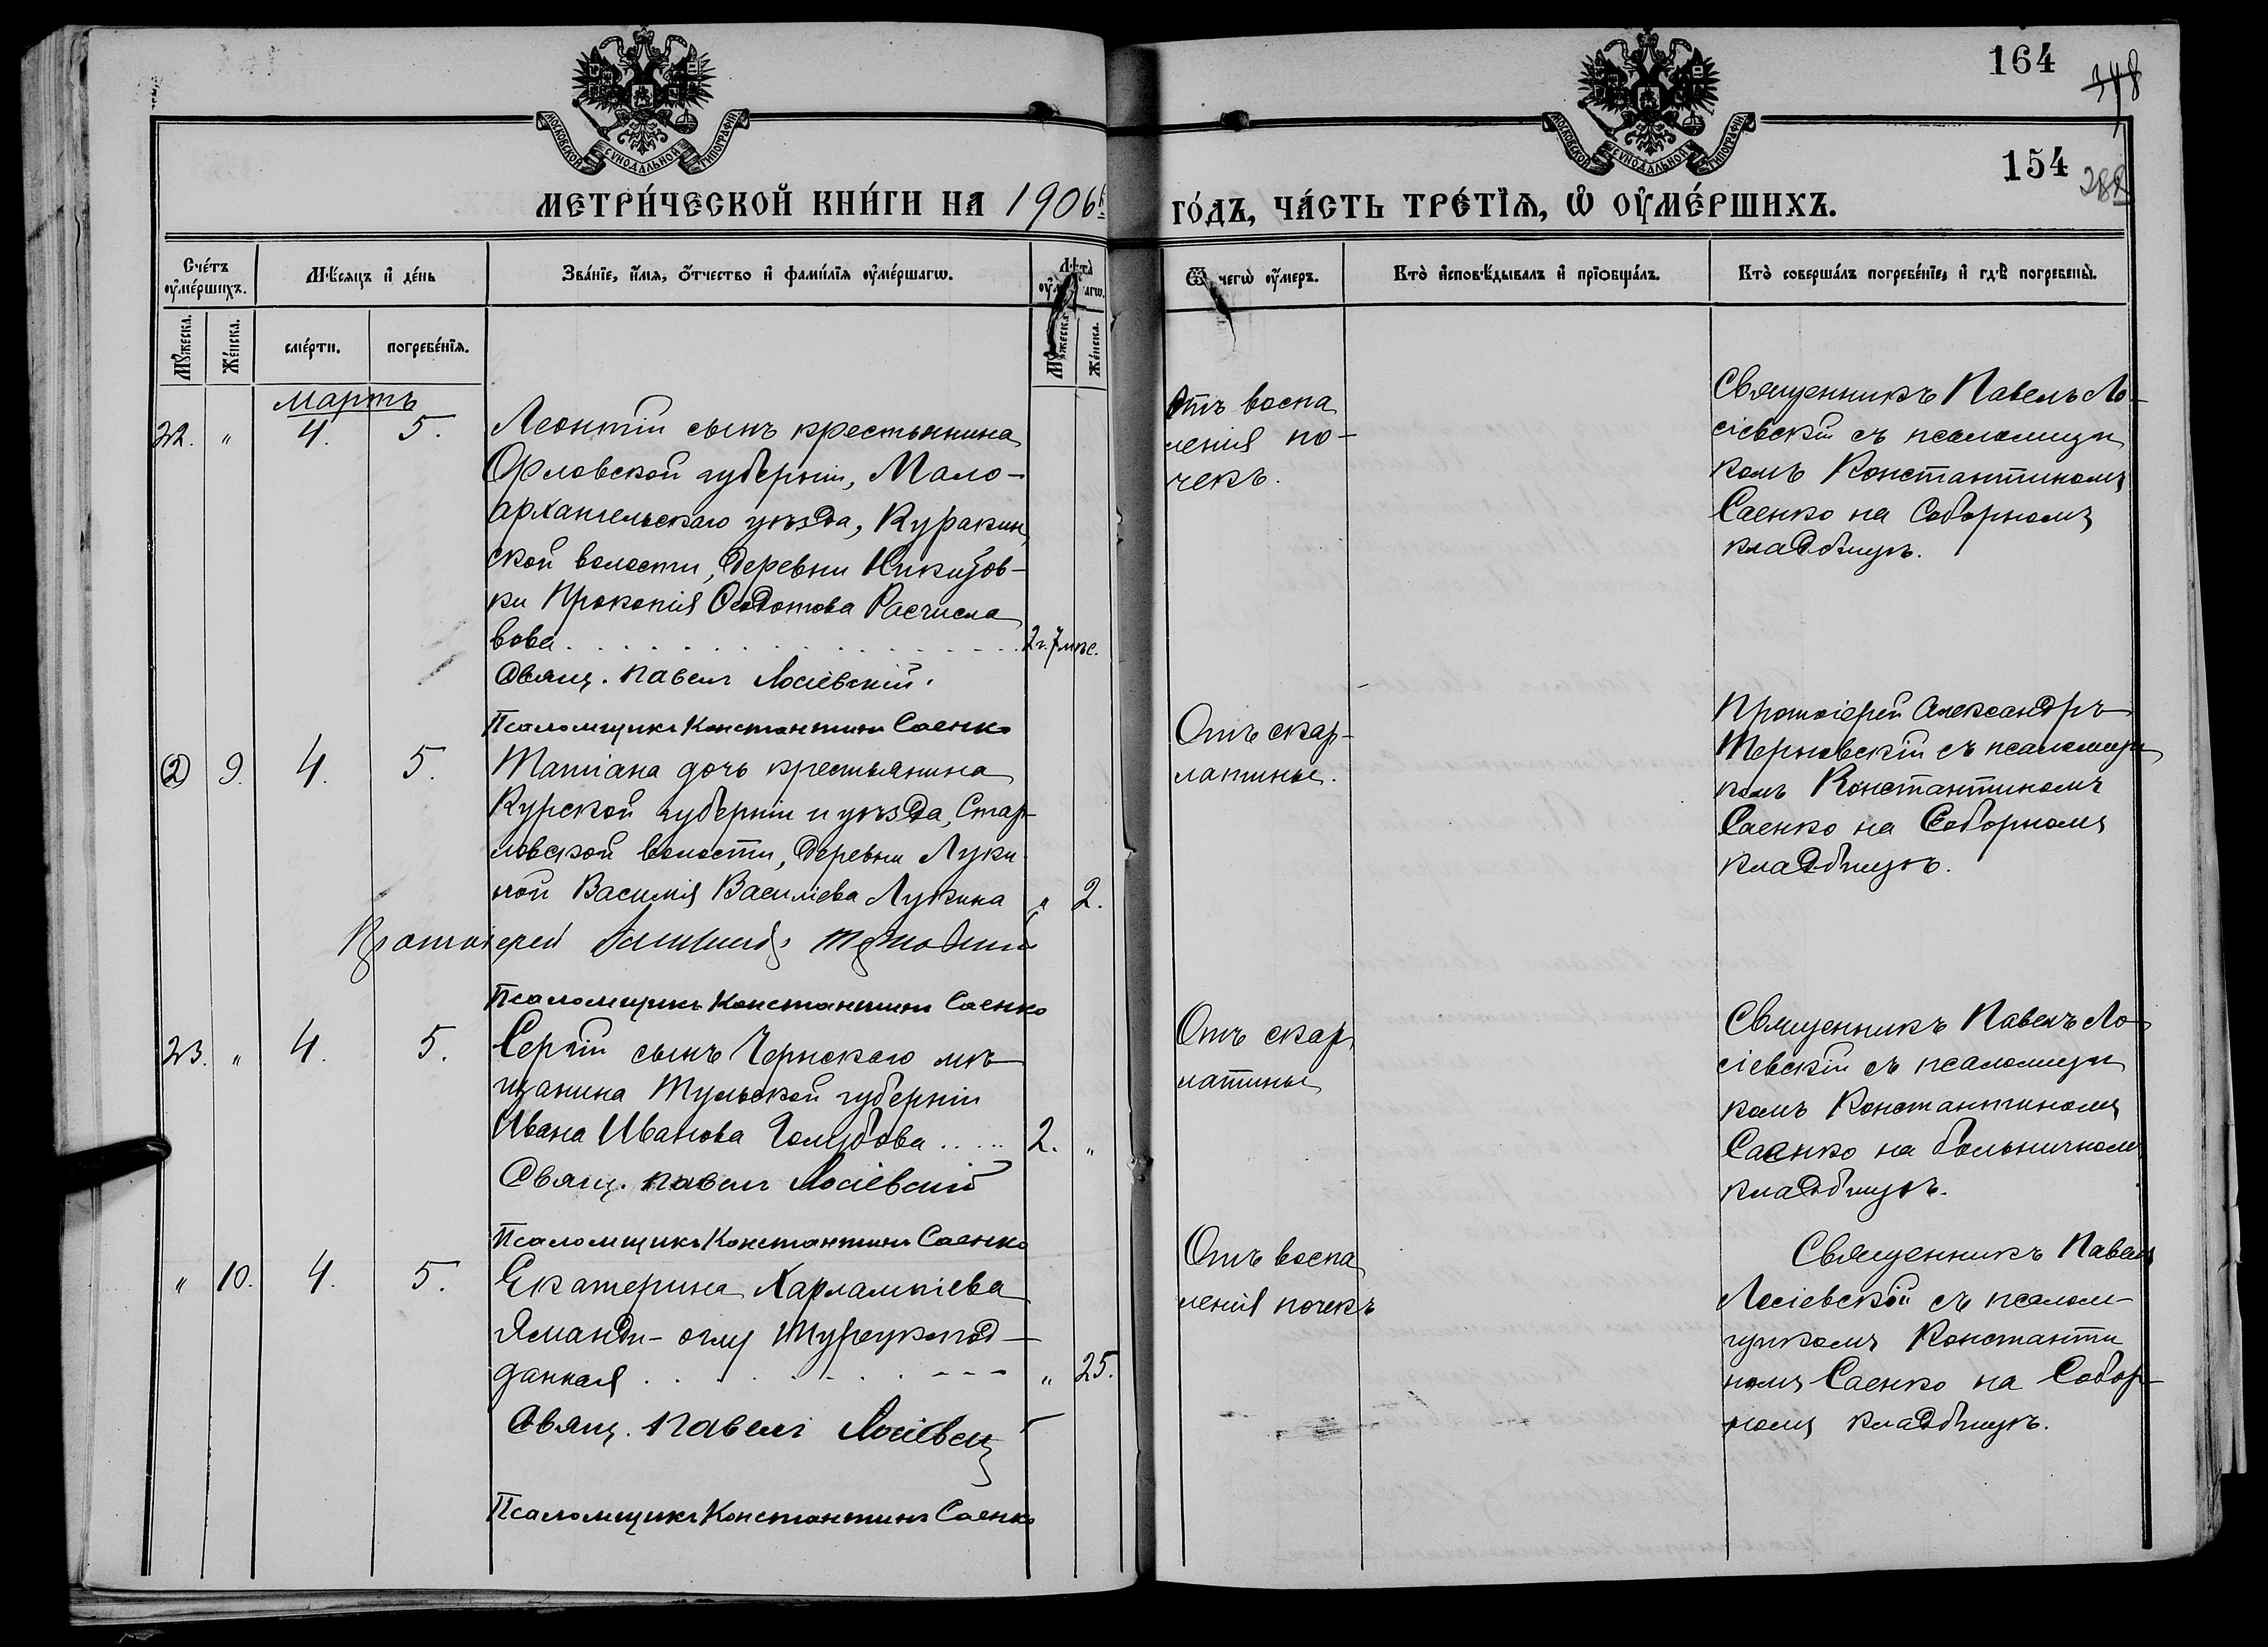 164
348
МОСКОВСКОЙ СѴНОДАЛЬНОЙ ТИПОГРАФІИ
МОСКОВСКОЙ СѴНОДАЛЬНОЙ ТИПОГРАФІИ
154
288
МЕТРИ́ЧЕСКОЙ КНИ́ГИ НА 1906й
ГО́ДЪ, ЧА́СТЬ ТРЕ́ТІѦ, Ѡ ОУ҆МЕ́РШИХЪ.
Сче́тъ оу҆ме́ршихъ.
Мѣ́сяцъ и҆ де́нь
Зва́нїе, и҆́мя, о҆́тчество и҆ фами́лїя оу҆ме́ршагѡ.
Лѣта̀ оу҆м агѡ.
Ѿ чегѡ̀ оу҆́меръ.
Кто̀ и҆сповѣ́дывалъ и҆ прїѻбща́лъ.
Кто̀ соверша́лъ погребе́нїе, и҆ гдѣ̀ погребены̀.
Мꙋ́жеска.
Же́нска.
сме́рти.
погребе́нїѧ.
Мꙋ́жеска
Же́нска.
Мартъ
22. " 4. 5.
Леонтій сынъ крестьянина
Орловской губерніи, Мало-
архангельскаго уѣзда, Куракин
ской волости, деревни Никитов-
ки Прокопія Ѳедотова Расчисла
вова . . . 2 г. 7 мѣс.
Свящ. Павелъ Лосіевскій.
Псаломщикъ Константинъ Саенко
Отъ воспа
ленія по-
чекъ.
Священникъ Павелъ Ло-
сіевскій съ псаломщи
комъ Константиномъ
Саенко на Соборномъ
кладбищѣ.
2 9. 4. 5.
Татіана дочь крестьянина
Курской губерніи и уѣзда, Стар-
ловской волости, деревни Луки
ной Василія Василіева Лукина " 2.
Протоіерей
Псаломщикъ Константинъ Саенко
Отъ скар-
латины.
Протоіерей Александръ
Терновскій съ псаломщи
комъ Константиномъ
Саенко на Соборномъ
кладбищѣ.
23. " 4. 5.
Сергій сынъ Чернскаго мѣ
щанина Тульской губерніи
Ивана Иванова Голубова ..... 2. "
Свящ. Павелъ Лосіевскій
Псаломщикъ Константинъ Саенко
Отъ скар
латины
Священникъ Павелъ Ло
сіевскій съ псаломщи
комъ Константиномъ
Саенко на больничномъ
кладбищѣ.
" 10. 4. 5.
Екатерина Харлампіева
Яманди-оглу Турецкопод-
данная . . . - - - " 25.
Свящ. Павелъ Лосіевскій
Псаломщикъ Константинъ Саенко
Отъ воспа
ленія почекъ
Священникъ Павелъ
Лосіевскій съ псалом-
щикомъ Константи
номъ Саенко на Собор-
номъ кладбищѣ.